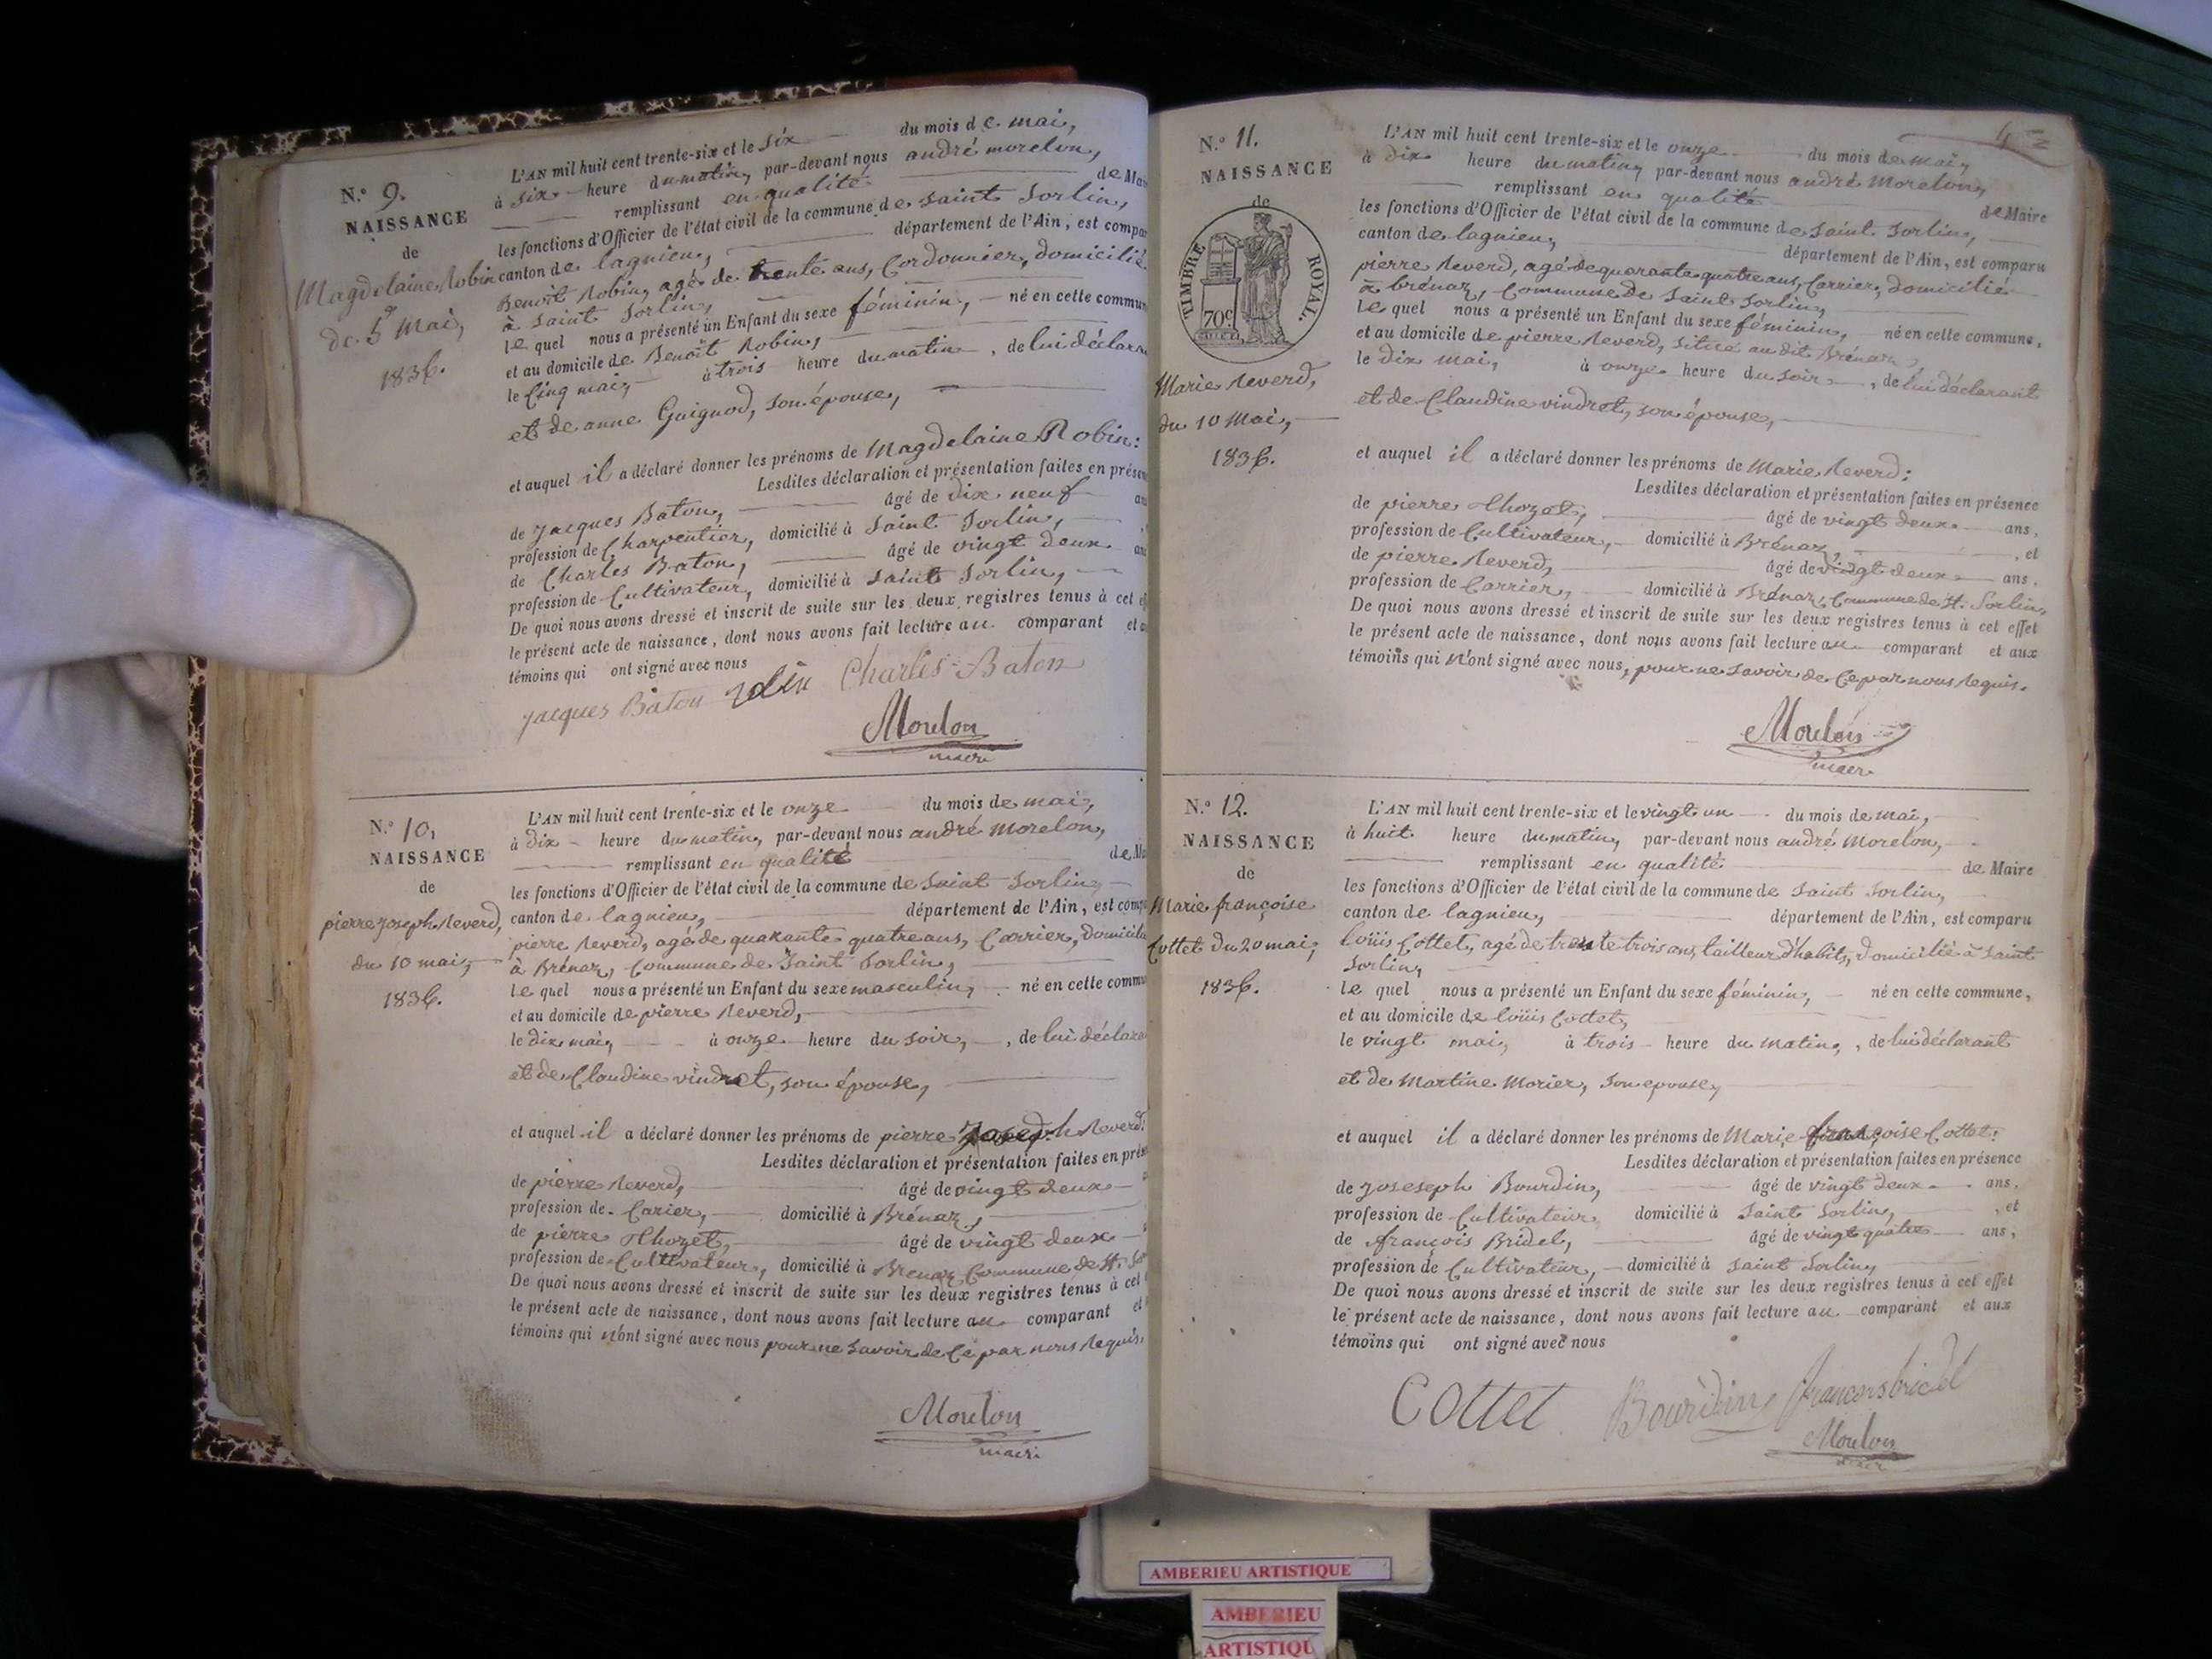 N.° 9.
NAISSANCE
de
Magdelaine Robin
de 5 Mai,
1836.
L'AN mil huit cent trente-six et le six du mois de mai,
à six heure du matin, par-devant nous andré morelon,
remplissant en qualité de Mai
les fonctions d'Officier de l'état civil de la commune de saint Sorlin,
canton de lagnieu, département de l'Ain, est compar
Benoît Robin, agé de trente ans, Cordonnier, domicilié
à Saint Sorlin,
le quel nous a présenté un Enfant du sexe féminin, né en cette commun
et au domicile de Benoît Robin,
le Cinq mai, à trois heure du matin, de lui déclara
et de anne Guignod, son épouse,
et auquel il a déclaré donner les prénoms de Magdelaine Robin:
Lesdites déclaration et présentation faites en présen
de Jacques Baton, âgé de dix neuf an
profession de Charpentier, domicilié à Saint Sorlin,
de Charles Baton, âgé de vingt deux an
profession de Cultivateur, domicilié à Saint Sorlin,
De quoi nous avons dressé et inscrit de suite sur les deux registres tenus à cet ef
le présent acte de naissance, dont nous avons fait lecture au comparant et a
témoins qui ont signé avec nous
Jacques Baton Charles Baton
Morelon
maire
N.° 10,
NAISSANCE
de
pierre Joseph Reverd,
du 10 mai,
1836.
L'AN mil huit cent trente-six et le onze du mois de mai,
à dix heure du matin, par-devant nous andré Morelon,
remplissant en qualité de Ma
les fonctions d'Officier de l'état civil de la commune de Saint Sorlin,
canton de lagnieu, département de l'Ain, est comp
pierre Reverd, agé de quarante quatre ans, Carrier, domicilié
à Brénaz, Commune de Saint Sorlin,
le quel nous a présenté un Enfant du sexe masculin, né en cette commu
et au domicile de pierre Reverd,
le dix mai, à onze heure du soir, de lui déclara
et de Claudine vindret, son épouse,
et auquel il a déclaré donner les prénoms de pierre Joseph Reverd:
Lesdites déclaration et présentation faites en prés
de pierre Reverd, âgé de vingt deux
profession de Carier, domicilié à Brénaz,
de pierre Thozet, âgé de vingt deux
profession de Cultivateur, domicilié à Brenaz Commune de St. So
De quoi nous avons dressé et inscrit de suite sur les deux registres tenus à cet
le présent acte de naissance, dont nous avons fait lecture au comparant et
témoins qui n'ont signé avec nous pour ne savoir de Ce par nous Requis.
Morelon
maire
N.° 11.
NAISSANCE
de
TIMBRE ROYAL.
70c
Marie Reverd,
du 10 Mai,
1836.
L'AN mil huit cent trente-six et le onze du mois de mai,
à dix heure du matin, par-devant nous andré Morelon,
remplissant en qualité de Maire
les fonctions d'Officier de l'état civil de la commune de Saint Sorlin,
canton de lagnieu, département de l'Ain, est comparu
pierre Reverd, agé de quarante quatre ans, Carrier, domicilié
à brénaz, Commune de Saint Sorlin,
Le quel nous a présenté un Enfant du sexe féminin, né en cette commune,
et au domicile de pierre Reverd, situé au dit Brénaz,
le dix mai, à onze heure du soir, de lui déclarant
et de Claudine vindret, son épouse,
et auquel il a déclaré donner les prénoms de Marie Reverd:
Lesdites déclaration et présentation faites en présence
de pierre Thozet, âgé de vingt deux ans,
profession de Cultivateur, domicilié à Brénaz, , et
de pierre Reverd, âgé de vingt deux ans,
profession de Carrier, domicilié à Brénaz, Commune de St. Sorlin,
De quoi nous avons dressé et inscrit de suite sur les deux registres tenus à cet effet
le présent acte de naissance, dont nous avons fait lecture au comparant et aux
témoins qui n'ont signé avec nous, pour ne savoir de Ce par nous Requis.
Morelon
maire
N.° 12.
NAISSANCE
de
Marie françoise
Cottet du 20 mai,
1836.
L'AN mil huit cent trente-six et le vingt un du mois de mai,
à huit heure du matin, par-devant nous andré Morelon,
remplissant en qualité de Maire
les fonctions d'Officier de l'état civil de la commune de Saint Sorlin,
canton de lagnieu, département de l'Ain, est comparu
Loüis Cottet, agé de trente trois ans, tailleur d'habits, domicilié à Saint
Sorlin,
le quel nous a présenté un Enfant du sexe féminin, né en cette commune,
et au domicile de Loüis Cottet,
le vingt mai, à trois heure du matin, de lui déclarant
et de Martine Morier, son epouse,
et auquel il a déclaré donner les prénoms de Marie françoise Cottet:
Lesdites déclaration et présentation faites en présence
de Joseseph Bourdin, âgé de vingt deux ans,
profession de Cultivateur, domicilié à Saint Sorlin, , et
de françois Bridel, âgé de vingt quatre ans,
profession de Cultivateur, domicilié à Saint Sorlin,
De quoi nous avons dressé et inscrit de suite sur les deux registres tenus à cet effet
le présent acte de naissance, dont nous avons fait lecture au comparant et aux
témoins qui ont signé avec nous
Cottet Bourdin francois bridel
Morelon
maire
AMBERIEU ARTISTIQUE
AMBERIEU
ARTISTIQU